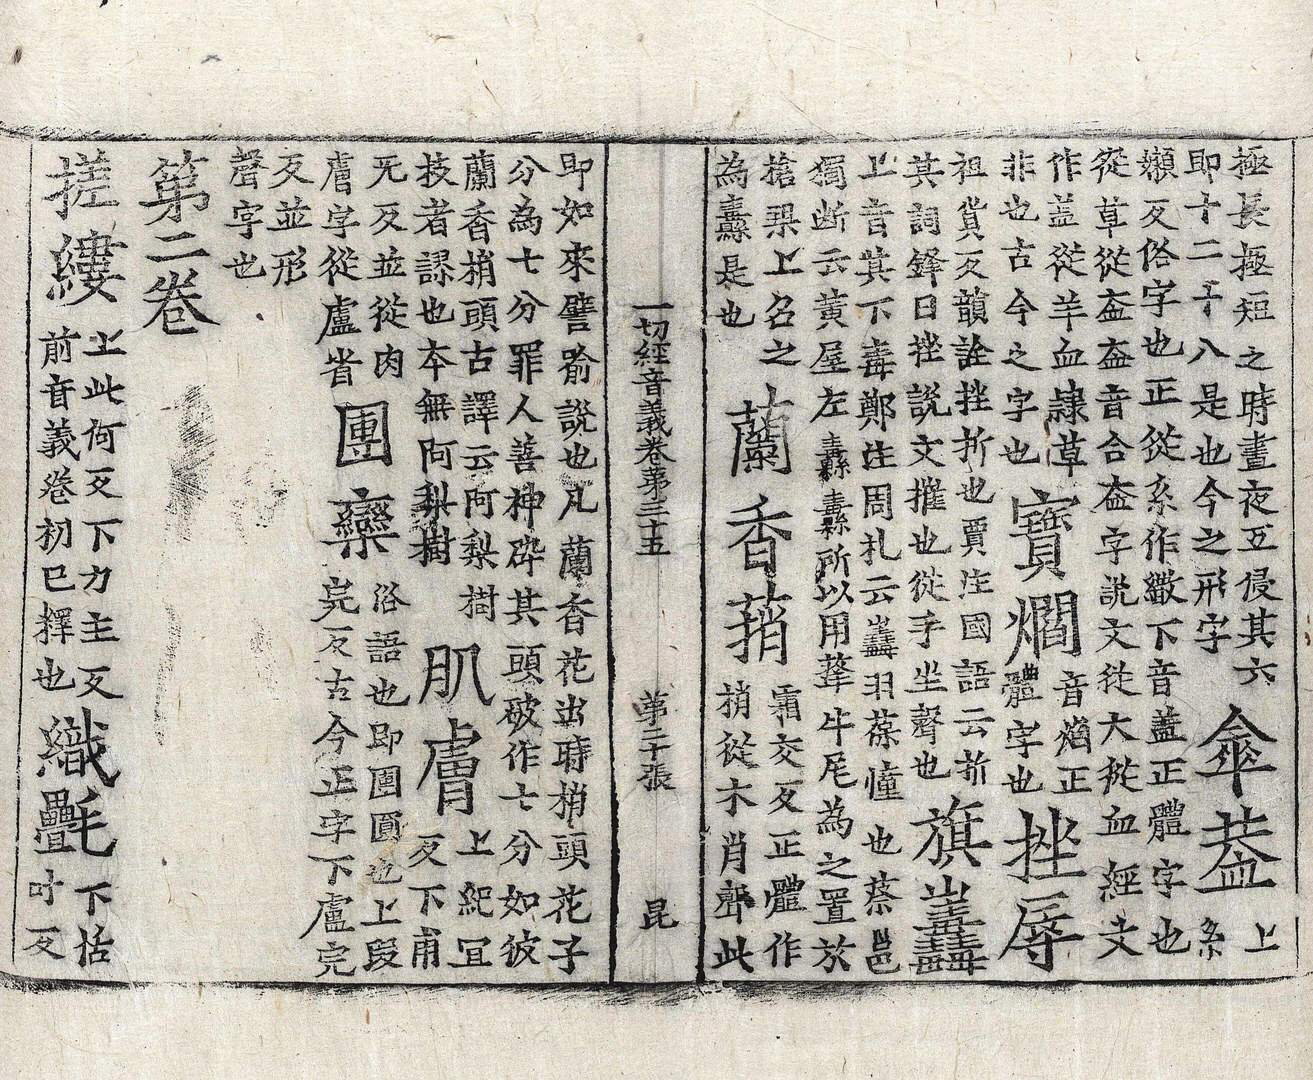 極長極短之時晝夜五侵其六
即十二十八是也今之形字
傘蓋
上系
嬾反俗字也正從糸作繖下音蓋正體字也
從草從盍盍音合盍字說文從大從血經文
作盖從羊血隸草
非也古今之字也
寶爓
音焰正
體字也
挫辱
祖貨反韻詮挫折也賈注國語云折
其詞鋒曰挫說文摧也從手坐聲也
旗纛
上音其下毒鄭注周礼云纛羽葆幢也蔡邕
獨斷云黃屋左纛纛所以用犛牛尾為之置於
搶梁上名之
為纛是也
蘭香萷
霜交反正體作
梢從木肖聲此
一切經音義卷第三十五 第二十張 昆
即如來譬喻說也凡蘭香花出時梢頭花子
分為七分罪人善神碎其頭破作七分如彼
蘭香梢頭古譯云阿梨樹
技者謬也本無阿梨樹
肌膚
上紀冝
反下甫
无反並從肉
膚字從盧省
團欒
俗語也即團圓也上段
完反古今正字下盧完
反並形
聲字也
第二卷
搓縷
上此何反下力主反
前音義卷初已釋也
織㲲
下恬
叶反